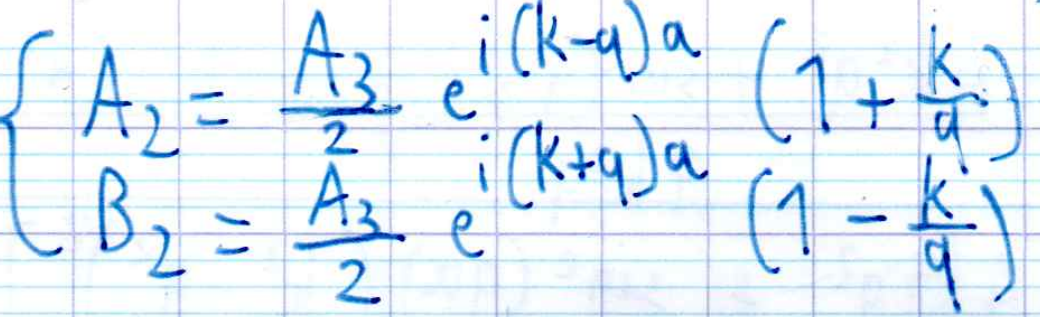 A₂ = A₃/2 e^{i(k-q)a} (1 + k/q)
B₂ = A₃/2 e^{i(k+q)a} (1 - k/q)